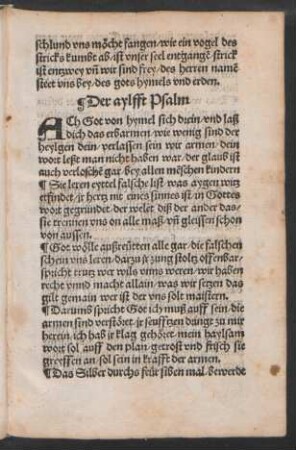 schlund vns möche fangen, wie ein vogel des
stricks kumbt ab, ist vnser seel entgangē, strick
ist entzwey vñ wir sind frey, des herren namē
steet vns bey, des gots hymels vnd erden.
¶ Der aylfft Psalm
ACh Got von hymel sich drein, vnd laß
dich das erbarmen, wie wenig sind der
heylgen dein, verlassen sein wir armen, dein
wort lest man nicht haben war, der glaub ist
auch verloschē gar, bey allen mēschen kindern
¶ Sie leren eyttel falsche list, was aygen witz
erfindet, jr hertz nit eines sinnes ist, in Gottes
wort gegründet, der welet diß der ander das,
sie trennen vns on alle maß, vñ gleissen schon
von aussen.
¶ Got wölle außreüten alle gar, die falschen
schein vns leren, darzu jr zung stoltz offenbar,
spricht trutz wer wils vnns weren, wir haben
recht vnnd macht allain, was wir setzen das
gilt gemain wer ist der vns solt maistern.
¶ Darumb spricht Got ich muß auff sein, die
armen sind verstöret, jr seufftzen dringt zu mir
herein, ich hab jr klag gehöret, mein haylsam
wort sol auff den plan, getrost vnd frisch sie
greyffen an, sol sein in krafft der armen.
¶ Das Silber durchs feür siben mal, bewerdt